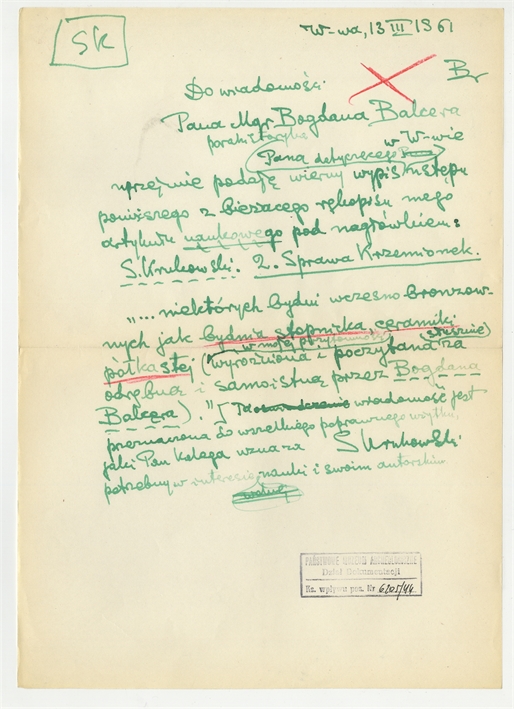 SK
W-wa, 13 III 1961
Br
Do wiadomości
Pana Mgr Bogdana Balcera
w W-wie
Pana dotyczącego
uprzejmie podaję wierny wypis wstępu
poniższego z bieżącego rękopisu mego
artykułu naukowego pod nagłówkiem:
S. Krukowski. 2. Sprawa Krzemionek.
"... niektórych bydni wczesno bronzow-
nych jak bydnia stopnicka ceramiki
w mojej (słusznie)
półkastej (wyróżniona i poczytana za
odrębną i samoistną przez Bogdana
Balcera)." wiadomość jest
przeznaczona do wszelkiego poprawnego użytku,
jaki Pan Kolega uzna za S Krukowski
potrzebny w interesie nauki i swoim autorskim
PAŃSTWOWE MUZEUM ARCHEOLOGICZNE
Dział Dokumentacji
Ks. wpływu poz. Nr 6205/44